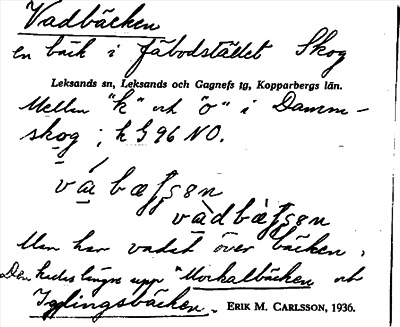 Vadbäcken
en bäck i fäbodstället Skog
Leksands sn, Leksands och Gagnefs tg, Kopparbergs län.
Mellan "k" och "o" i Damm-
skog; h G 96 NO.
Man har vadat över bäcken.
Den kallas längre upp "Morkalbäcken och
Igglingsbäcken. ERIK M. CARLSSON, 1936.